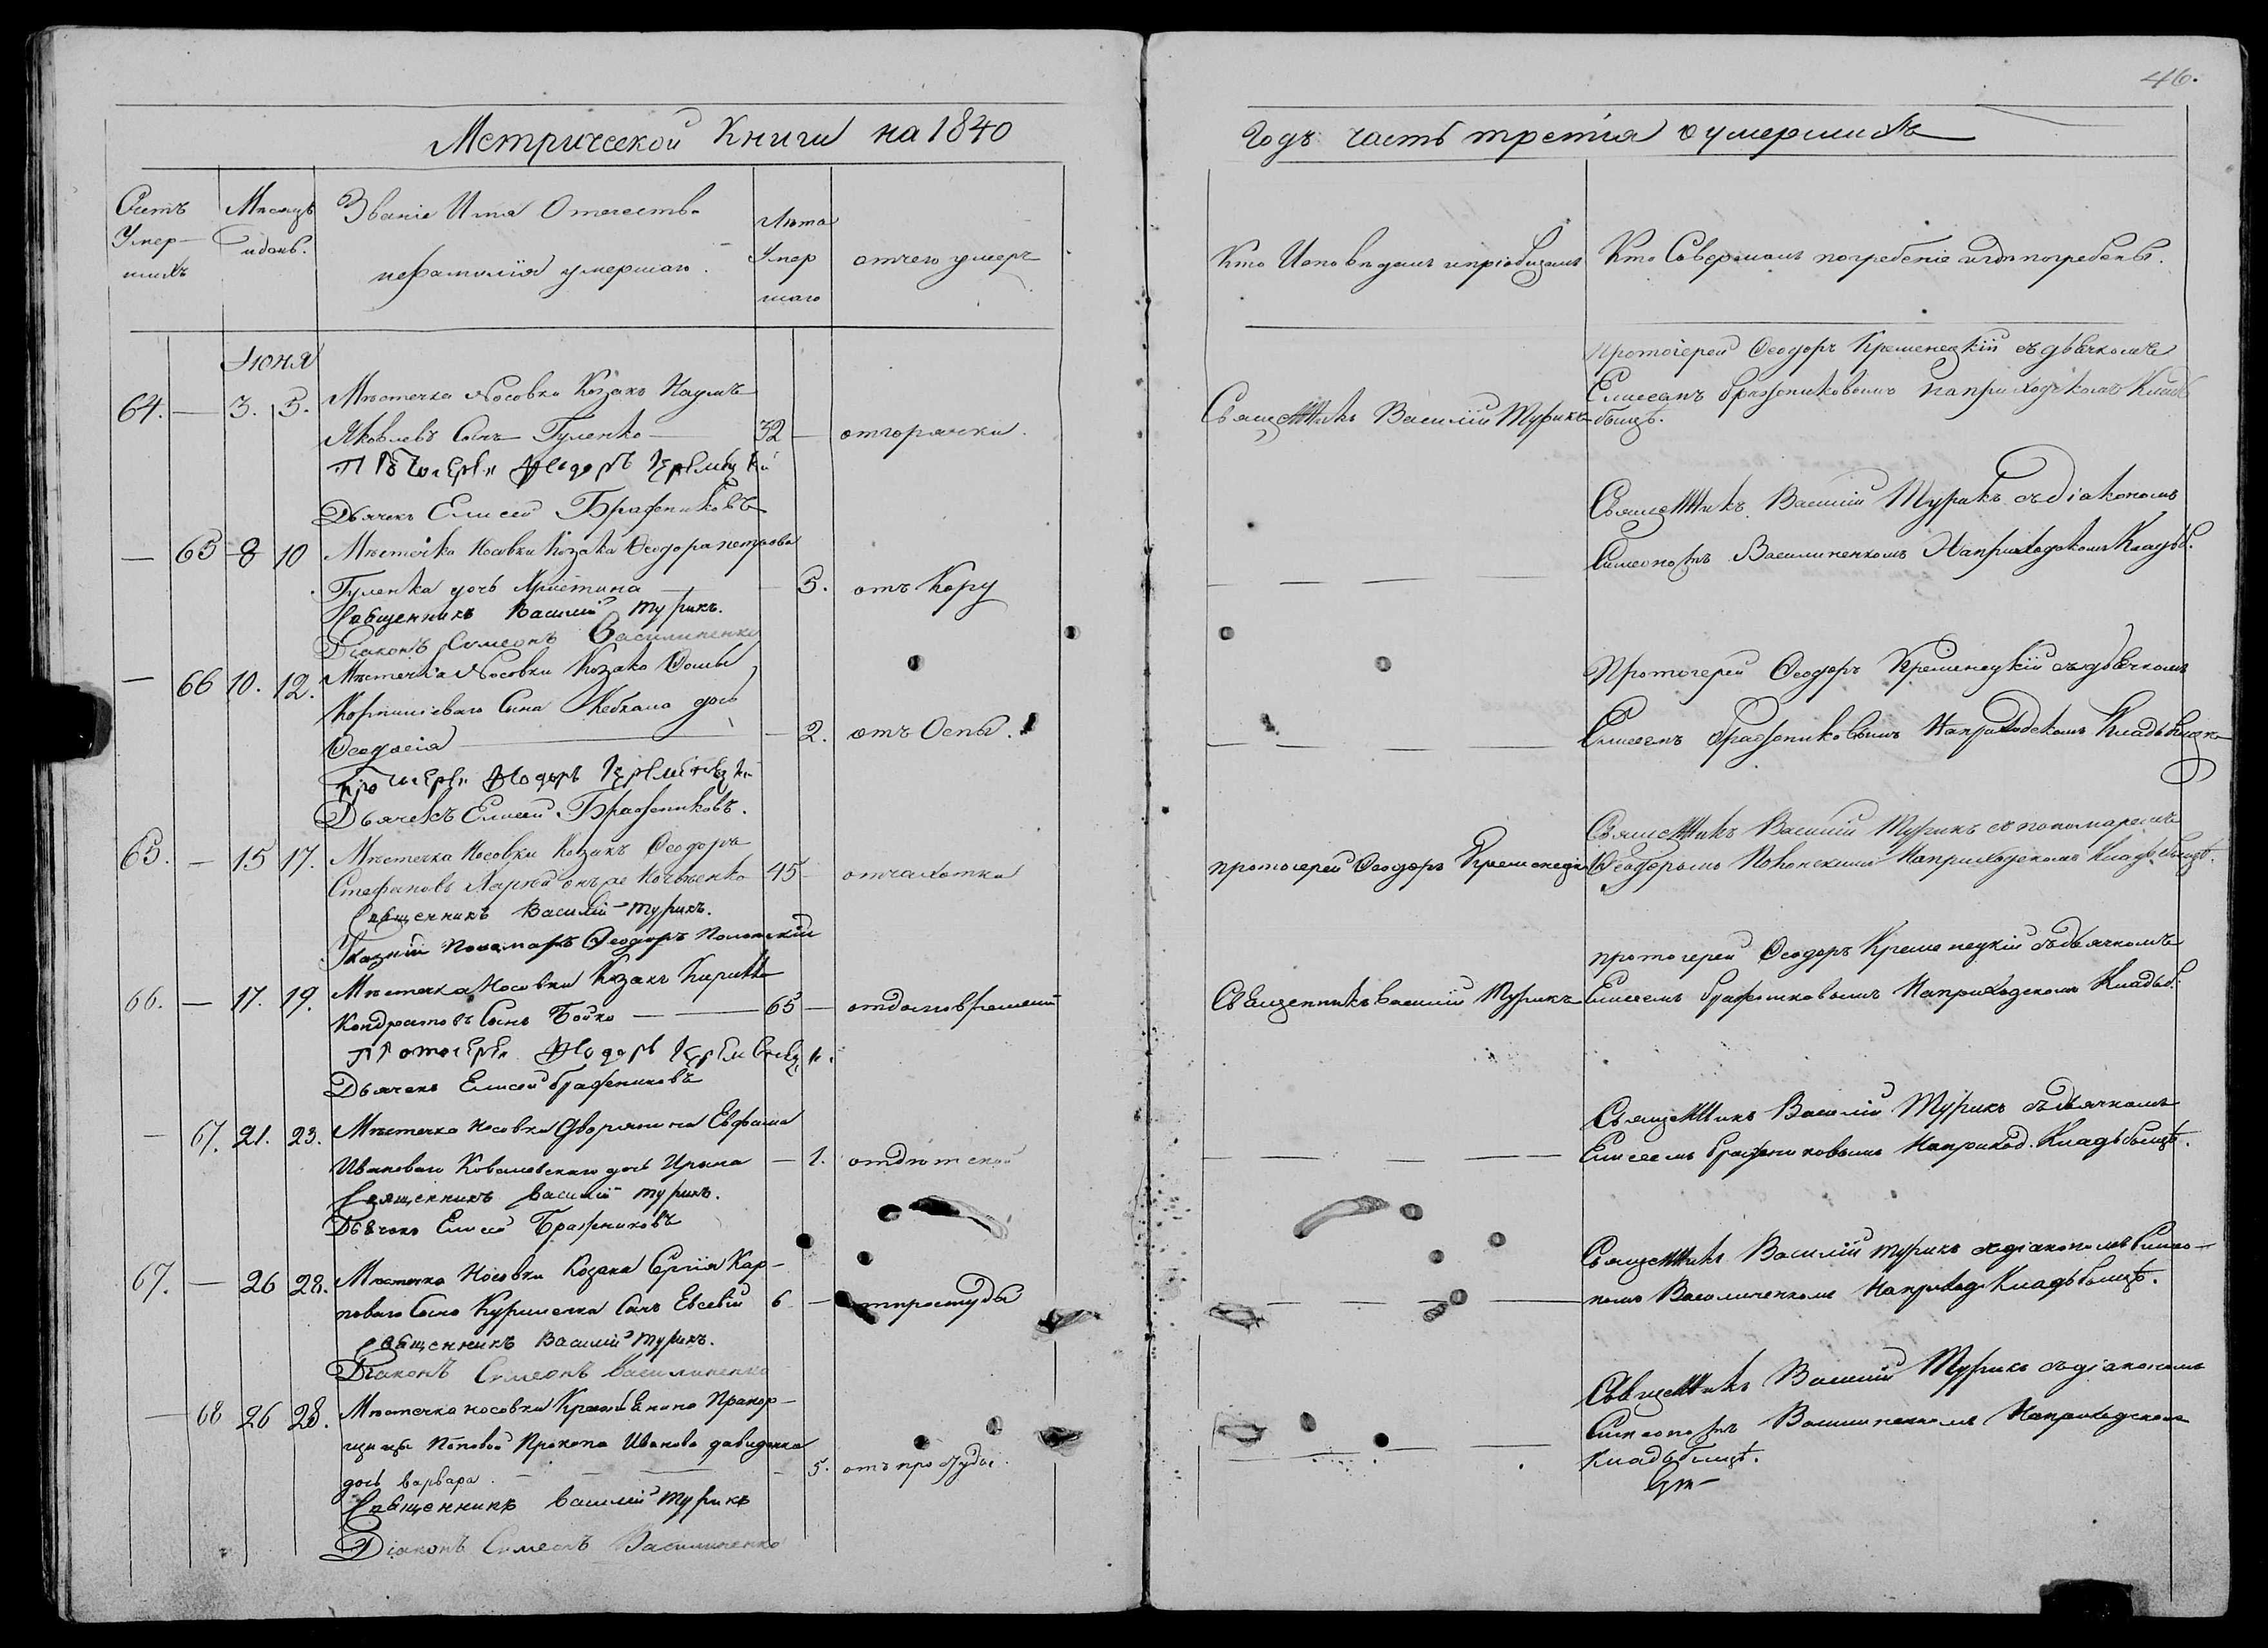 46.
Метрической Книги на 1840
Годъ часть третія о умершихъ
Счетъ Умер- шихъ
Мѣсяцъ и день.
Званіе Имя Отечество
и Фамилія умершаго.
Лѣта Умер шаго
отчего умеръ
Кто Исповѣдалъ и пріобщалъ
Кто Совершалъ погребеніе и гдѣ погребены.
Іюня
64. — 3. 5. Мѣстечка Носовки Козакъ Наумъ
Яковлевъ Сынъ Гуленко — 32 — отгорячки.
Протоіерей Феодоръ Кременецкій
Дьячекъ Елисей Бражниковъ
Священникъ Василій Турикъ
Протоіерей Феодоръ Кременецкій съ дьячкомъ
Елисеемъ Бражниковымъ на приходскомъ Кладбищѣ.
— 65 8 10 Мѣстечка Носовки Козака Феодора петрова
Гуленка дочь Христина — 3. отъ Кору
Священникъ Василій Турикъ.
Діаконъ Симеонъ Василиненко
Священникъ Василій Турикъ съ діакономъ
Симеономъ Василиненкомъ На приходскомъ Кладьб.
— 66 10. 12. Мѣстечка Носовки Козака Фомы
Корниліеваго Сына дочь
Феодосія — 2. отъ Оспы.
Протоіерей Феодоръ Кременецкій
Дьячекъ Елисей Бражниковъ.
Протоіерей Феодоръ Кременецкій съ дьячкомъ
Елисеемъ Бражниковымъ На приходскомъ Кладьбищѣ
65. — 15 17. Мѣстечка Носовки Козакъ Феодоръ
Стефановъ 45 отчахотки
Священникъ Василій Турикъ.
Пономарь Феодоръ
протоіерей Феодоръ Кременецкій
Священникъ Василій Турикъ съ пономаремъ
Феодоромъ На приходскомъ Кладьбищѣ.
66. — 17. 19. Мѣстечка Носовки Козакъ Кирилъ
Кондратовъ Сынъ Бойко — 65 —
Протоіерей Феодоръ Кременецкій
Дьячекъ Елисей Бражниковъ
Священникъ Василій Турикъ
протоіерей Феодоръ Кременецкій съ дьячкомъ
Елисеемъ Бражниковымъ На приходскомъ Кладьб.
— 67. 21. 23. Мѣстечка Носовки Дворянина
Ивановаго Ковалевскаго дочь Ирина — 1. отдѣтской
Священникъ Василій Турикъ.
Дьячокъ Елисей Бражниковъ
Священникъ Василій Турикъ съ дьячкомъ
Елисеемъ Бражниковымъ На приход. Кладьбищѣ.
67. — 26 28. Мѣстечка Носовки Козака Сергія Кар-
поваго Сына Сынъ Евсевій 6 — отпростуды
Священникъ Василій Турикъ.
Діаконъ Симеонъ Василиненко
Священникъ Василій Турикъ съ діакономъ Симео-
номъ Василиненкомъ На приход Кладьбищѣ.
— 68 26 28. Мѣстечка носовки Прапор-
щицы Поповой Прокопа Иванова давиденка
дочь варвара. — 5. отъ простуды.
Священникъ Василій Турикъ
Діаконъ Симеонъ Василиненко
Священникъ Василій Турикъ съ діакономъ
Симеономъ Василиненкомъ На приходскомъ
Кладьбищѣ.